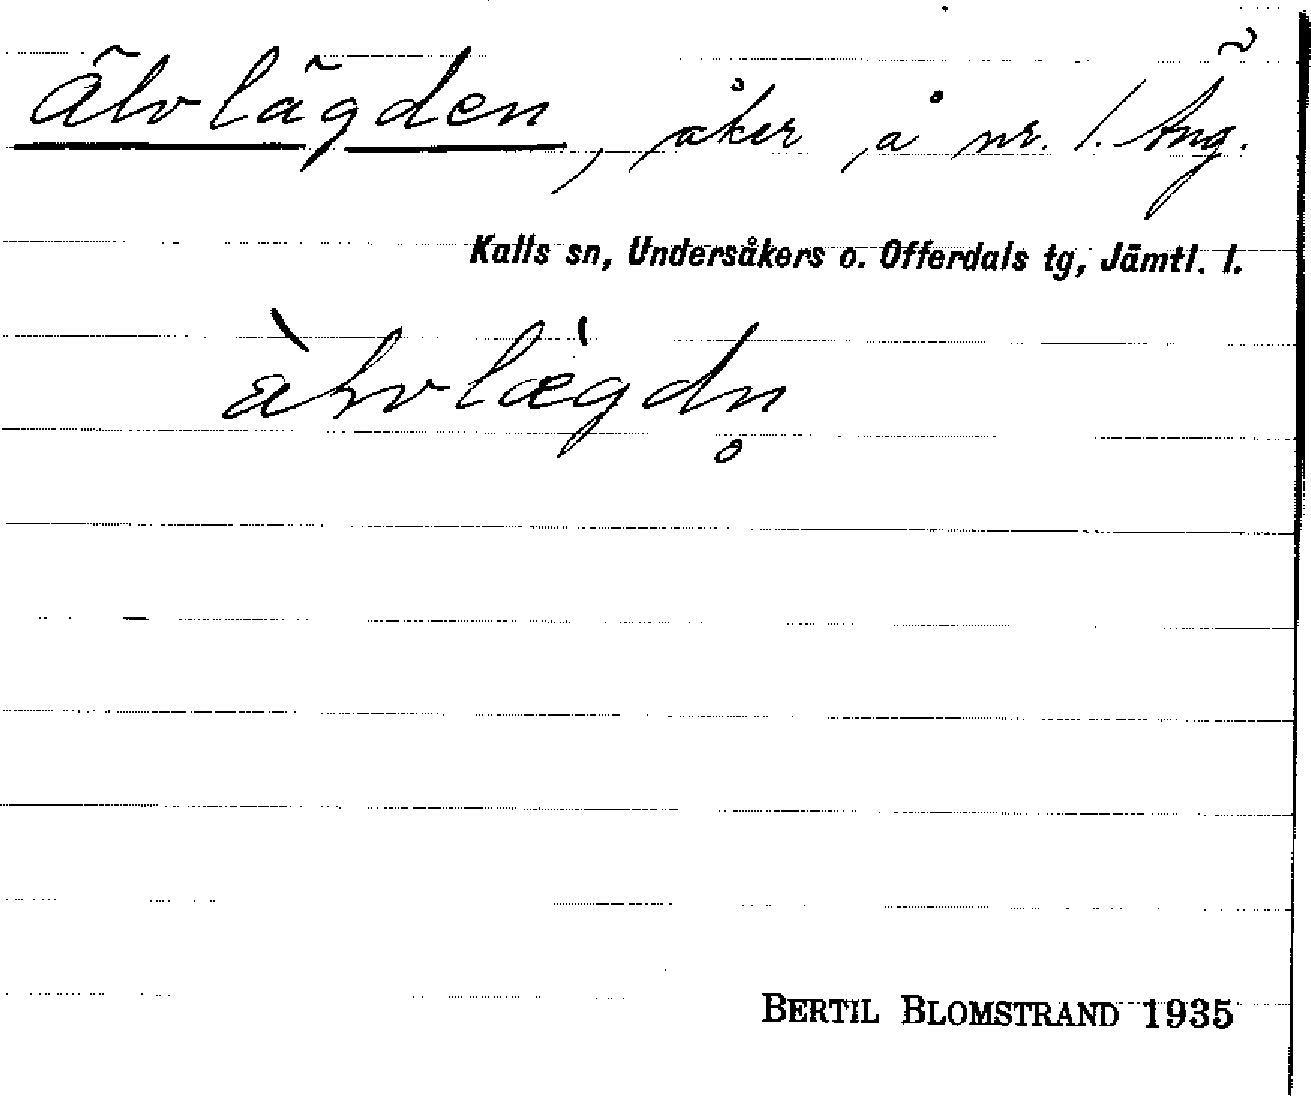 Älvlägden, åker å nr. 1. Äng.
Kalls sn, Undersåkers o. Offerdals tg, Jämtl. l.
àlvlægdn̥
BERTIL BLOMSTRAND 1935